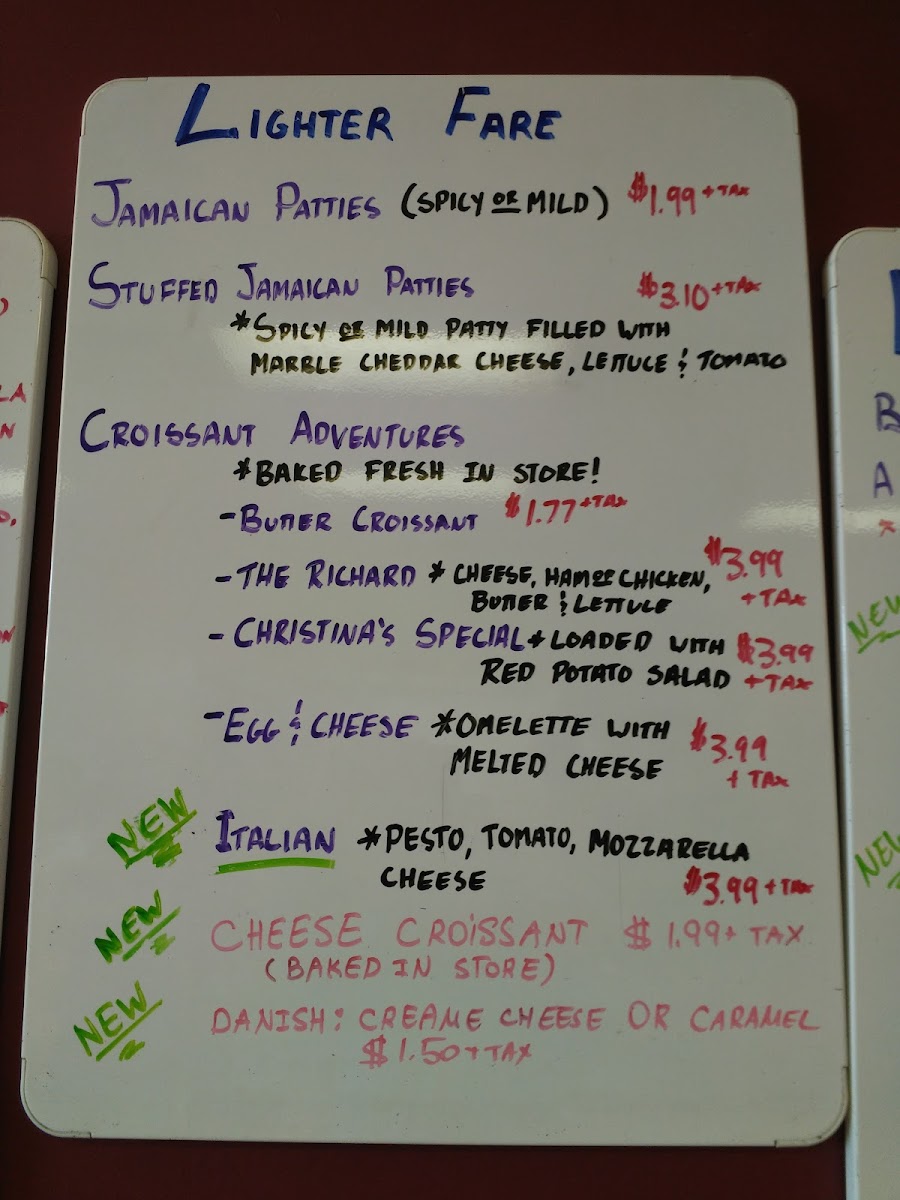 LIGHTER FARE
JAMAICAN PATTIES (SPICY OR MILD) $1.99 + TAX
STUFFED JAMAICAN PATTIES $3.10 + TAX
*SPICY OR MILD PATTY FILLED WITH
MARBLE CHEDDAR CHEESE, LETTUCE & TOMATO
CROISSANT ADVENTURES
*BAKED FRESH IN STORE!
-BUTTER CROISSANT $1.77 + TAX
-THE RICHARD * CHEESE, HAM OR CHICKEN, $3.99
BUTTER & LETTUCE + TAX
-CHRISTINA'S SPECIAL * LOADED WITH $3.99
RED POTATO SALAD + TAX
-EGG & CHEESE *OMELETTE WITH $3.99
MELTED CHEESE + TAX
NEW ITALIAN *PESTO, TOMATO, MOZZARELLA
CHEESE $3.99 + TAX
NEW CHEESE CROISSANT $1.99 + TAX
(BAKED IN STORE)
NEW DANISH: CREAME CHEESE OR CARAMEL
$1.50 + TAX
NEW
NEW